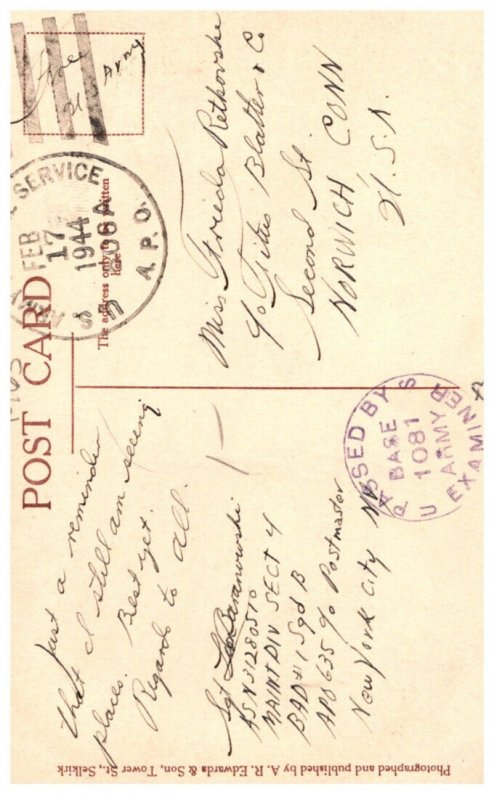 POST CARD
The address only to be written here
Free
U.S. Army
SERVICE
FEB
17
1944
A.P.O.
Just a reminder
that I still am seeing
places. Best yet.
Regards to all.
Sgt Baranowski
ASN 31280510
MAINT DIV SECT 4
BAD #1 Sqd B
APO 635 c/o Postmaster
New York City NY
PASSED BY
BASE
1081
ARMY
EXAMINER
U S
Miss Frieda Rethowske
c/o Titus Blatter & Co
Second St.
NORWICH CONN
U.S.A.
Photographed and published by A. R. Edwards & Son, Tower St., Selkirk